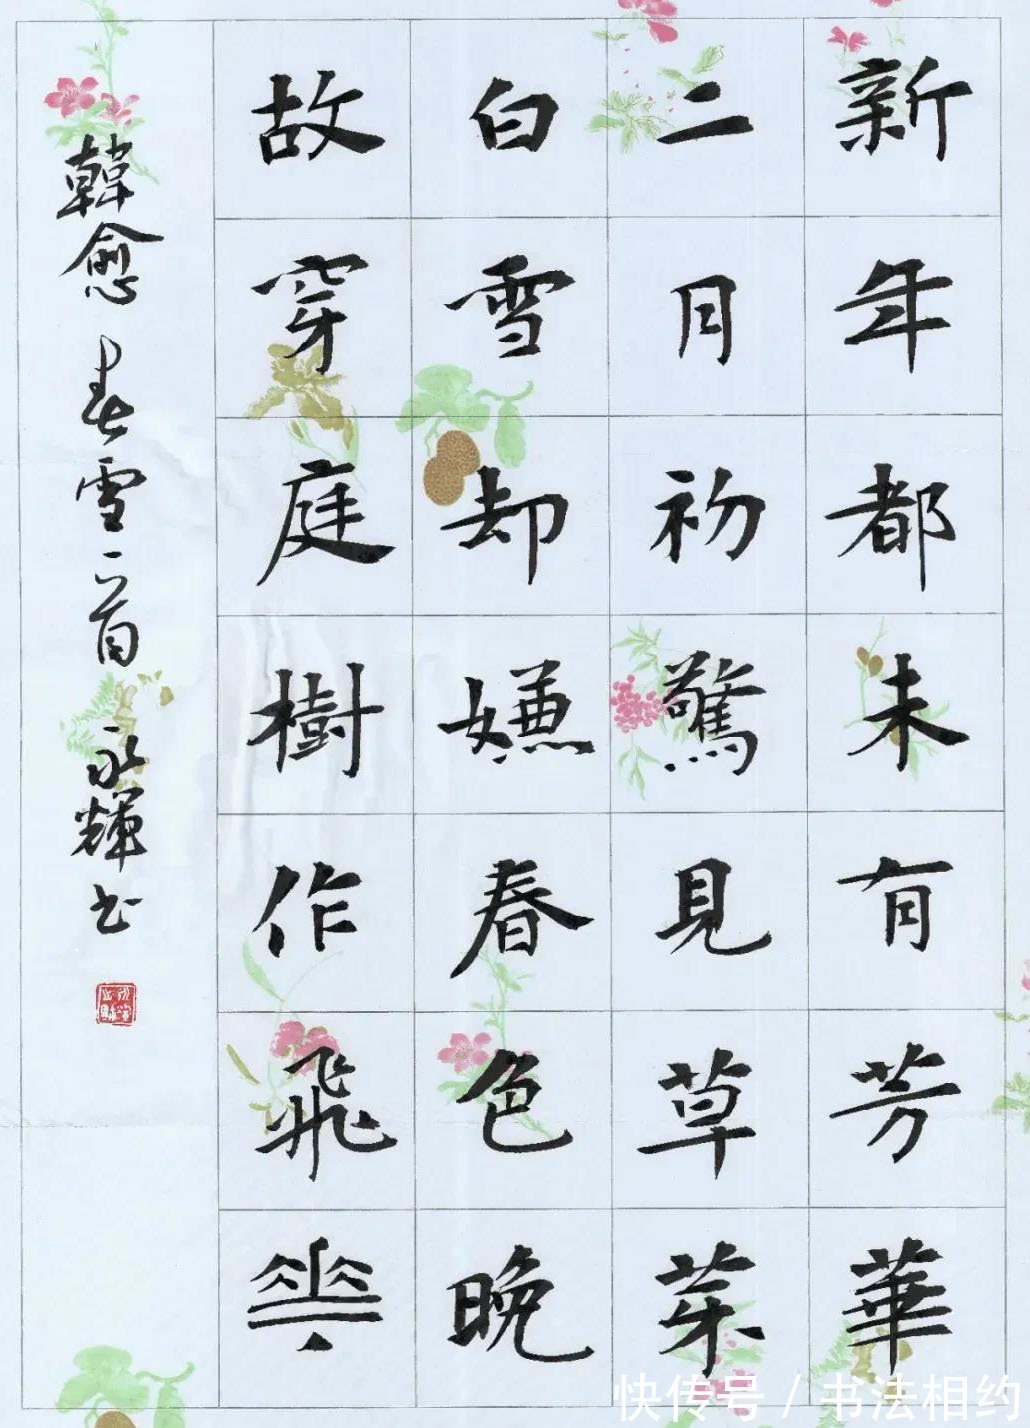 新年都未有芳華
二月初驚見草芽
白雪却嫌春色晚
故穿庭樹作飛華
韓愈春雪一首永輝书
快传号/书法相约